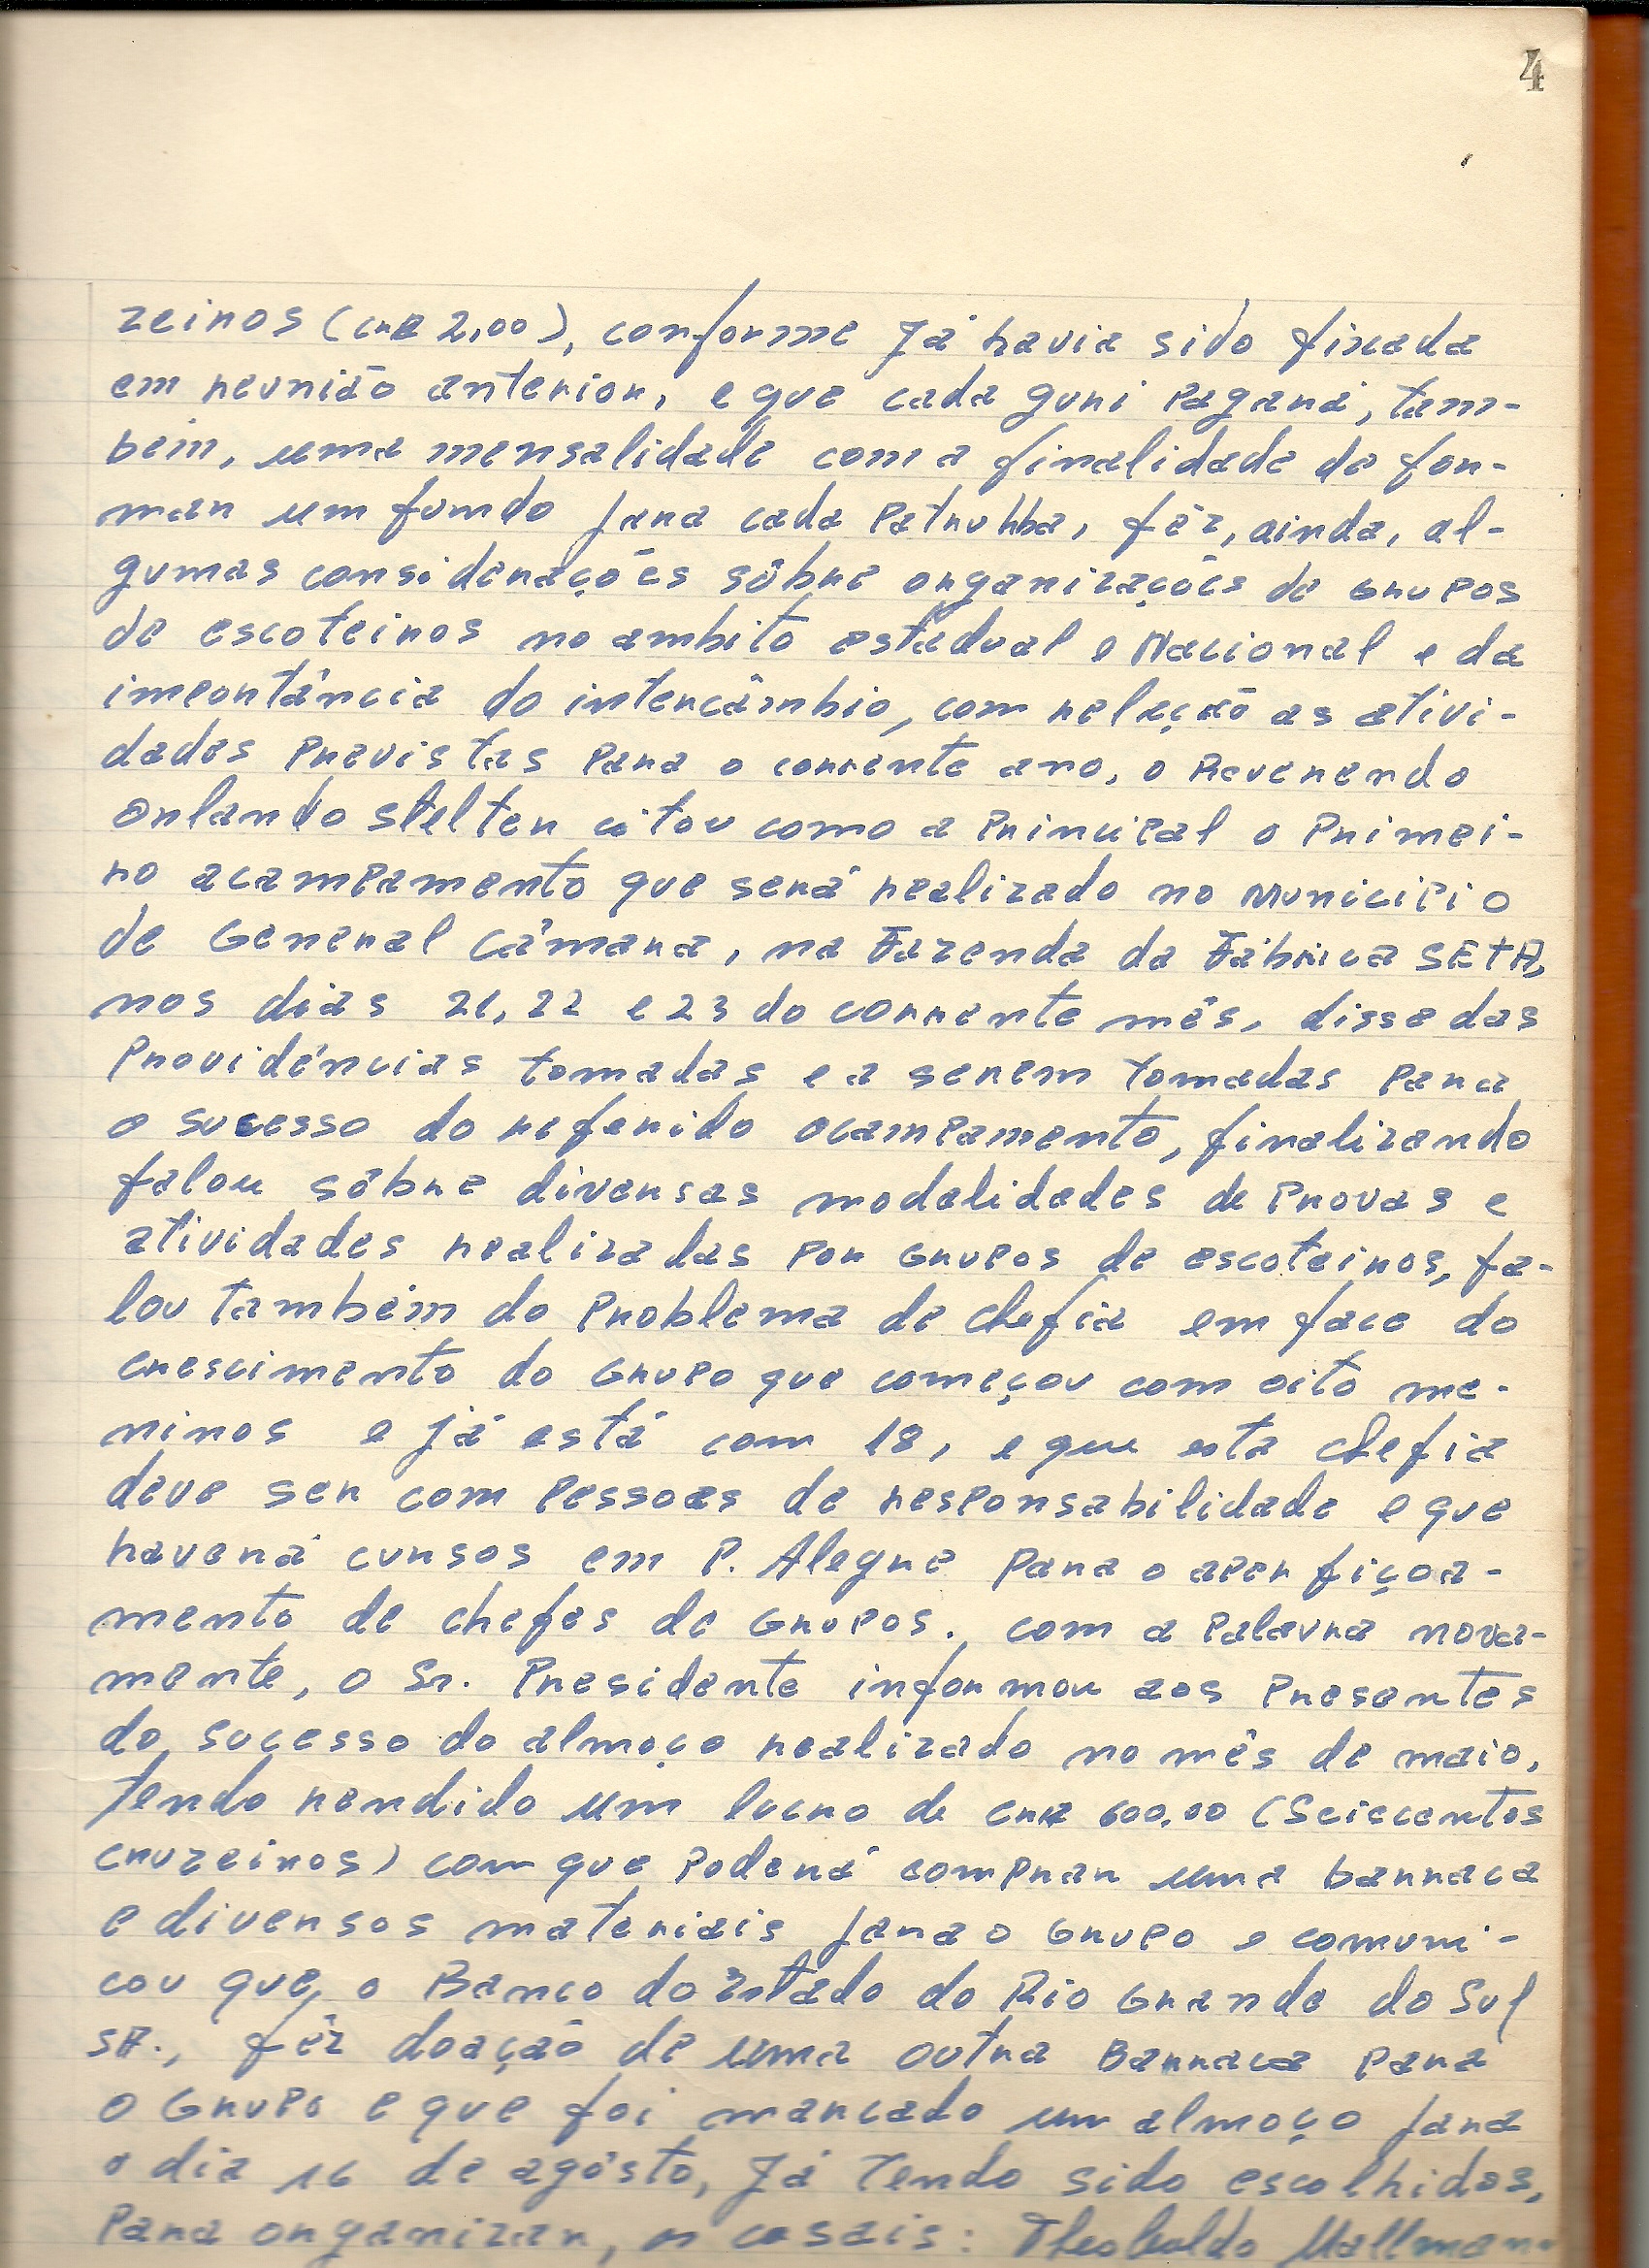 4
zeiros (cr$ 2,00), conforme já havia sido fixada
em reunião anterior, e que cada guri pagará, tam-
bém, uma mensalidade com a finalidade de for-
mar um fundo para cada Patrulha, fêz, ainda, al-
gumas considerações sôbre organizações de Grupos
de escoteiros no ambito estadual e Nacional e da
importância do intercâmbio, com relação as ativi-
dades previstas para o corrente ano, o Reverendo
Orlando Stelter citou como a principal o primei-
ro acampamento que será realizado no Municipio
de General Câmara, na Fazenda da Fábrica SETA,
nos dias 21, 22 e 23 do corrente mês, disse das
Providências tomadas e a serem tomadas para
o sucesso do referido acampamento, finalizando
falou sôbre diversas modalidades de provas e
atividades realizadas por Grupos de escoteiros, fa-
lou também do problema de chefia em face do
crescimento do Grupo que começou com oito me-
ninos e já está com 18, e que esta chefia
deve ser com pessoas de responsabilidade e que
haverá cursos em P. Alegre para o aperfiçoa-
mento de chefes de Grupos. com a palavra nova-
mente, o Sr. Presidente informou aos presentes
do sucesso do almoço realizado no mês de maio,
tendo rendido um lucro de cr$ 600,00 (Seiscentos
cruzeiros) com que poderá comprar uma barraca
e diversos materiais para o Grupo e comuni-
cou que, o Banco do Estado do Rio Grande do Sul
SA., fêz doação de uma outra Barraca para
o Grupo e que foi marcado um almoço para
o dia 16 de agôsto, já tendo sido escolhidos,
para organizar, os casais: Theobaldo Mallman-